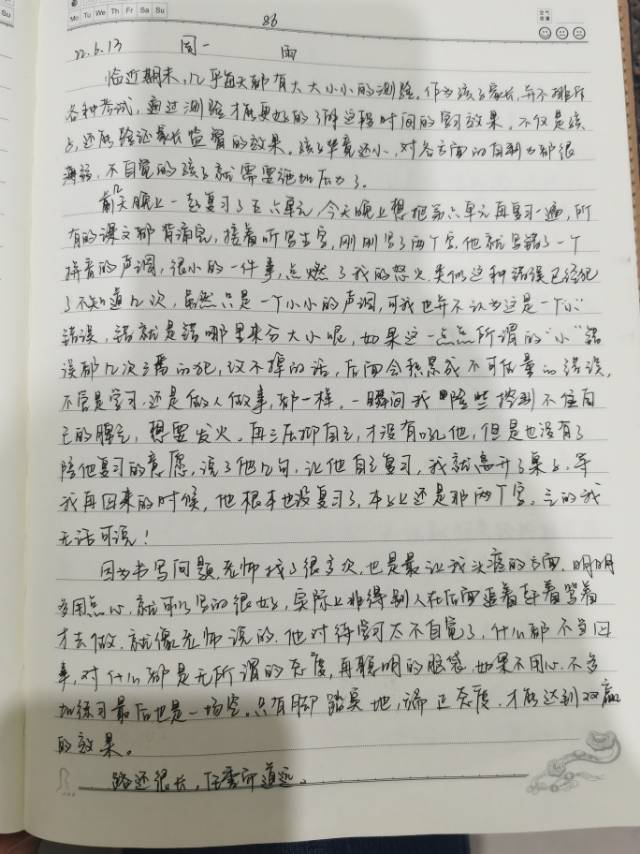 Mo Tu We Th Fr Sa Su
86
22.6.13 周一 雨
临近期末,几乎每天都有大大小小的测验。作为孩子家长,并不排斥
各种考试,通过测验才能更好的了解这段时间的学习效果。不仅是孩
子,还能验证家长监督的效果。孩子毕竟还小,对各方面的自制力都很
薄弱,不自觉的孩子就需要施加压力了。
前天晚上一起复习了五六单元,今天晚上想把第六单元再复习一遍,所
有的课文都背诵完,接着听写生字,刚刚写了两个字,他就写错了一个
拼音的声调,很小的一件事,点燃了我的怒火。类似这种错误已经犯
了不知道几次,虽然只是一个小小的声调,可我也并不认为这是一个“小”
错误,错就是错哪里来分大小呢,如果这一点点所谓的“小”错
误都几次三番的犯,改不掉的话,后面会积累成不可估量的错误,
不管是学习,还是做人做事,都一样。一瞬间我险些控制不住自
己的脾气,想要发火。再三压抑自己,才没有吼他,但是也没有了
陪他复习的意愿,说了他几句,让他自己复习,我就离开了桌子。等
我再回来的时候,他根本也没复习了,本上还是那两个字。气的我
无话可说!
因为书写问题,老师找了很多次,也是最让我头疼的方面,明明
多用点心,就可以写的很好,实际上非得别人在后面追着赶着
才去做。就像老师说的,他对待学习太不自觉了,什么都不当回
事,对什么都是无所谓的态度,再聪明的脑袋,如果不用心,不多
加练习最后也是一场空。只有脚踏实地,端正态度,才能达到双赢
的效果。
路还很长,任重而道远。